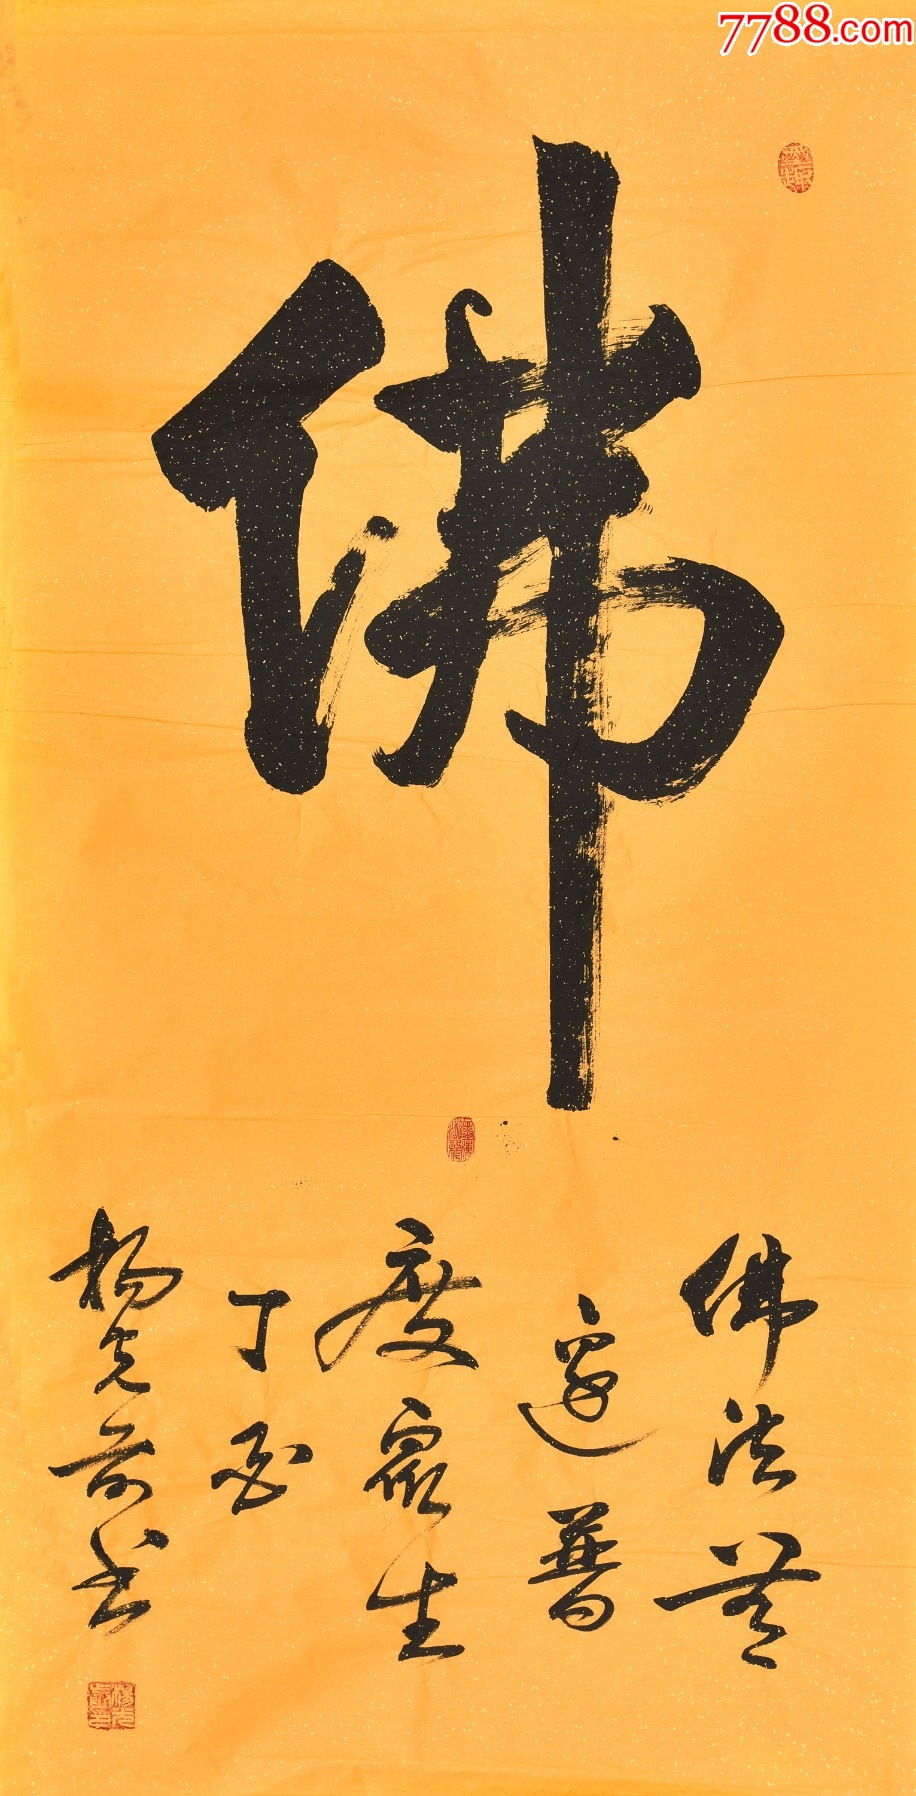 7788.com
佛
佛法無
邊普
度眾生
丁酉
楊光前书